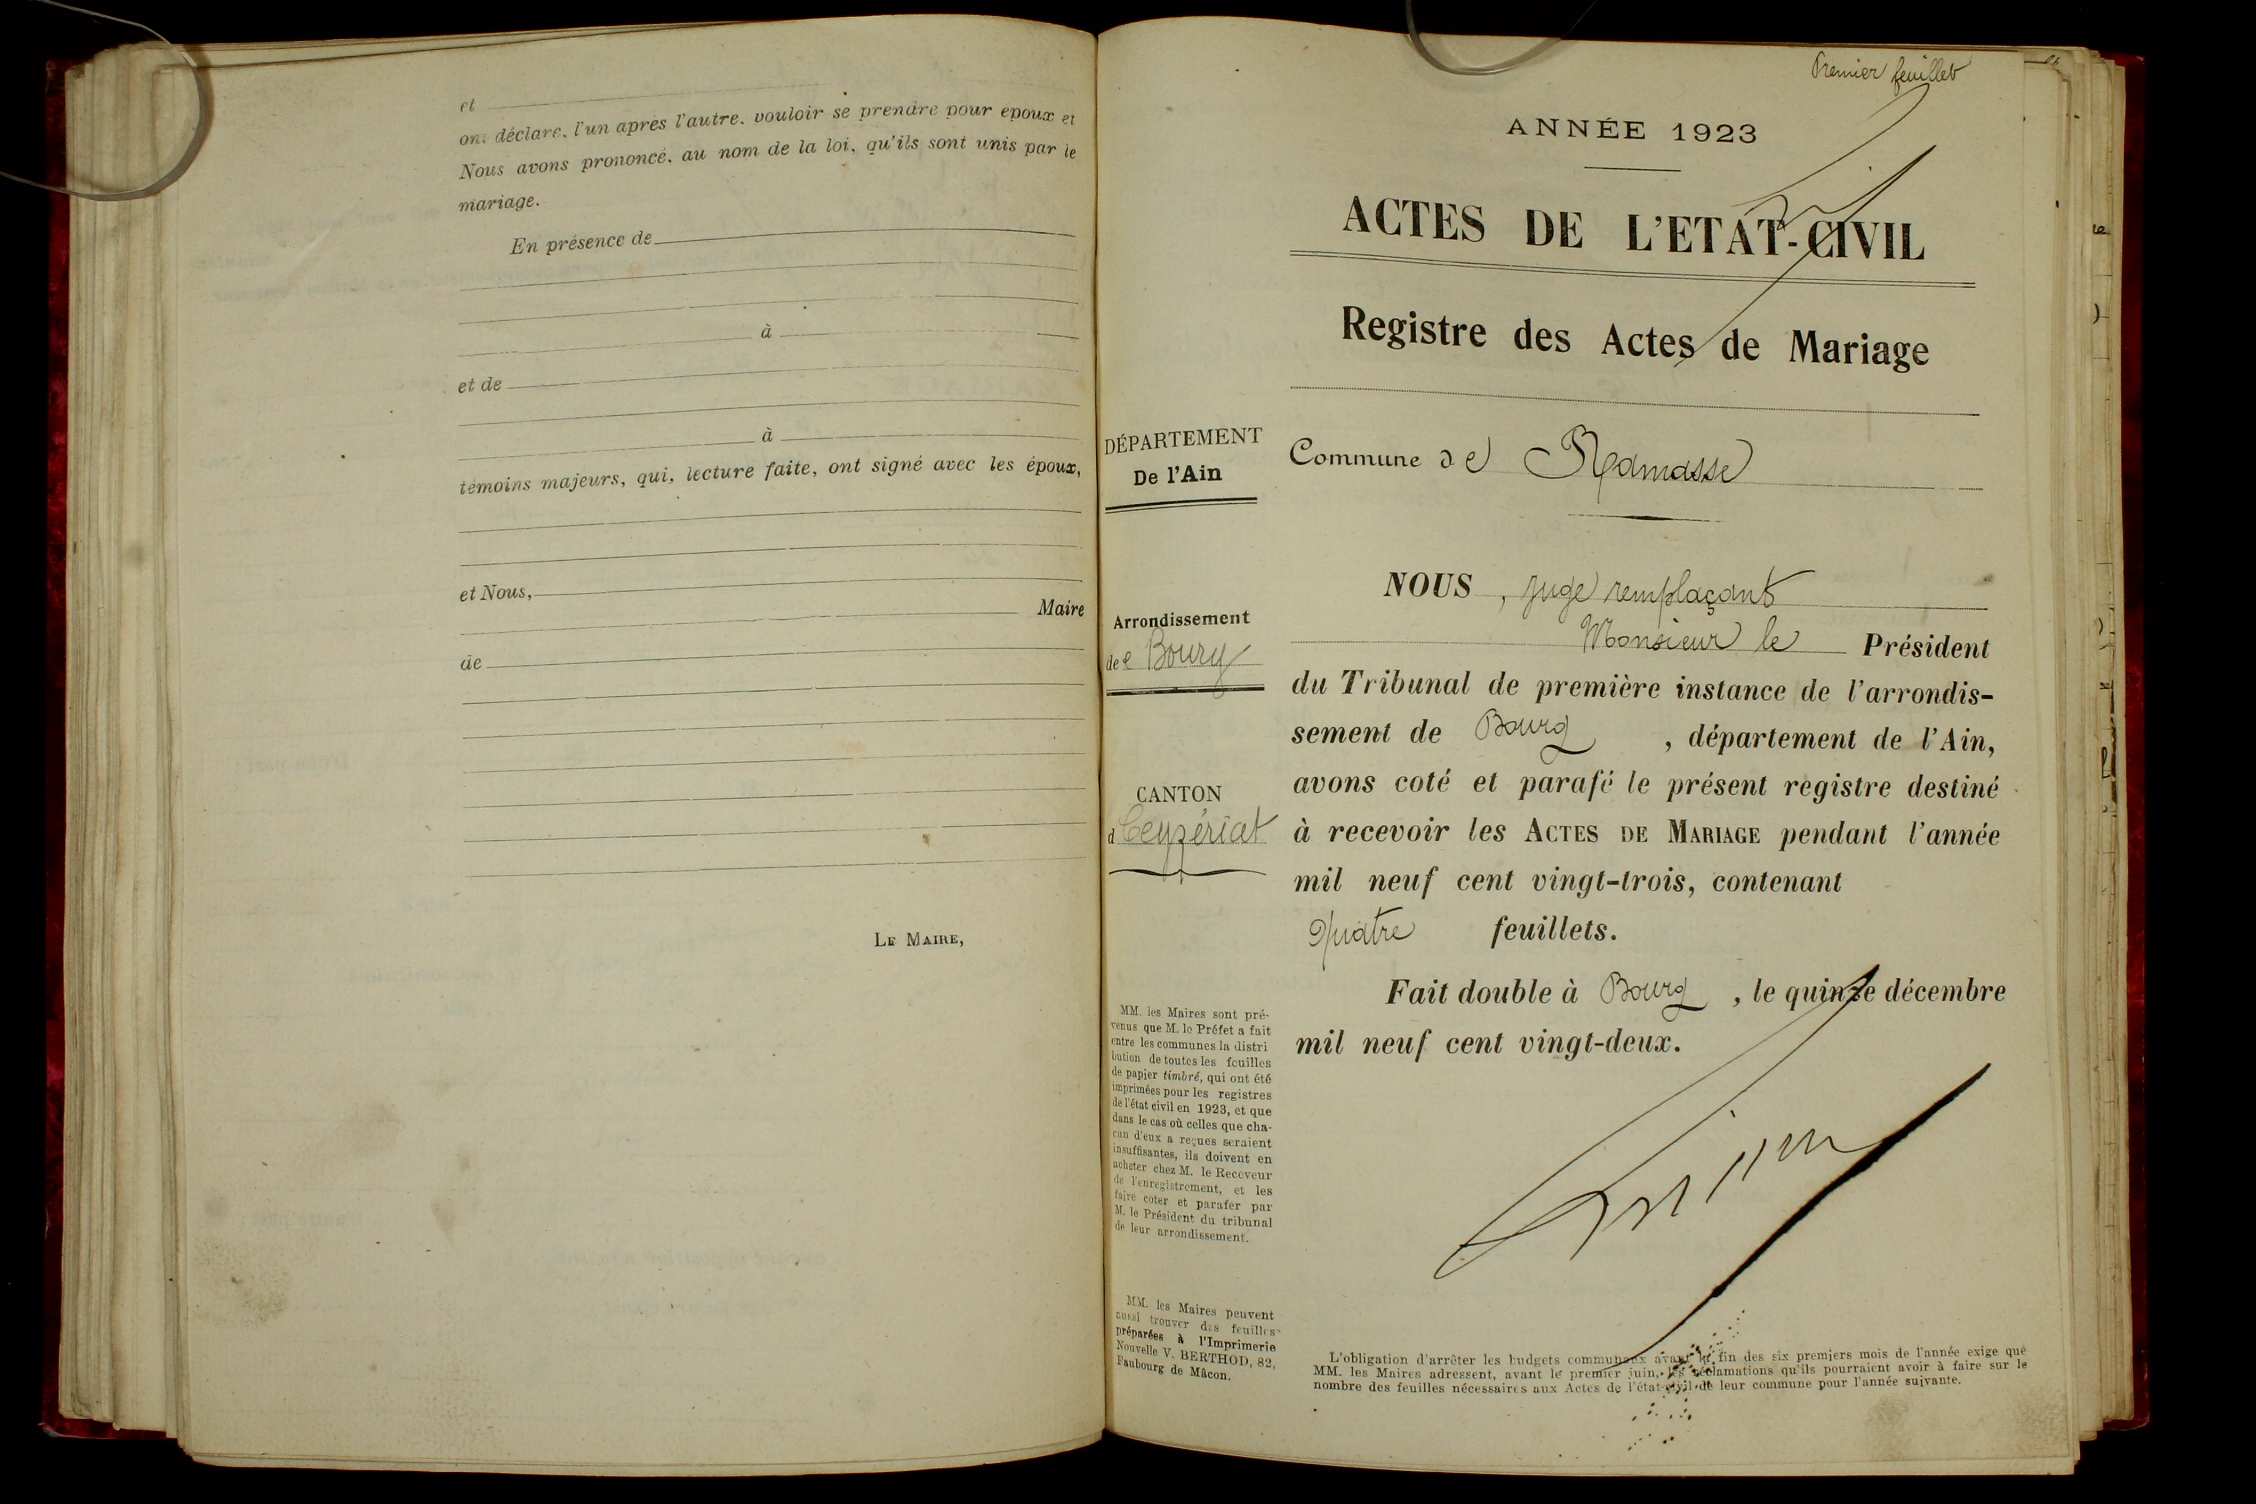 et
ont déclaré, l'un après l'autre, vouloir se prendre pour époux et
Nous avons prononcé, au nom de la loi, qu'ils sont unis par le
mariage.
En présence de
à
et de
à
témoins majeurs, qui, lecture faite, ont signé avec les époux,
et Nous,
Maire
de
LE MAIRE,
Premier feuillet
ANNÉE 1923
ACTES DE L'ETAT-CIVIL
Registre des Actes de Mariage
DÉPARTEMENT
De l'Ain
Arrondissement
de Bourg
CANTON
d Ceyzériat
MM. les Maires sont pré-
venus que M. le Préfet a fait
entre les communes la distri
bution de toutes les feuilles
de papier timbré, qui ont été
imprimées pour les registres
de l'état civil en 1923, et que
dans le cas où celles que cha-
cun d'eux a reçues seraient
insuffisantes, ils doivent en
acheter chez M. le Receveur
de l'enregistrement, et les
faire coter et parafer par
M. le Président du tribunal
de leur arrondissement.
MM. les Maires peuvent
aussi trouver des feuilles
préparées à l'Imprimerie
Nouvelle V. BERTHOD, 82,
Faubourg de Mâcon.
Commune de Ramasse
NOUS, juge remplaçant
Monsieur le Président
du Tribunal de première instance de l'arrondis-
sement de Bourg, département de l'Ain,
avons coté et parafé le présent registre destiné
à recevoir les ACTES DE MARIAGE pendant l'année
mil neuf cent vingt-trois, contenant
Quatre feuillets.
Fait double à Bourg, le quinze décembre
mil neuf cent vingt-deux.
L'obligation d'arrêter les budgets communaux avant la fin des six premiers mois de l'année exige que
MM. les Maires adressent, avant le premier juin, les réclamations qu'ils pourraient avoir à faire sur le
nombre des feuilles nécessaires aux Actes de l'état-civil de leur commune pour l'année suivante.